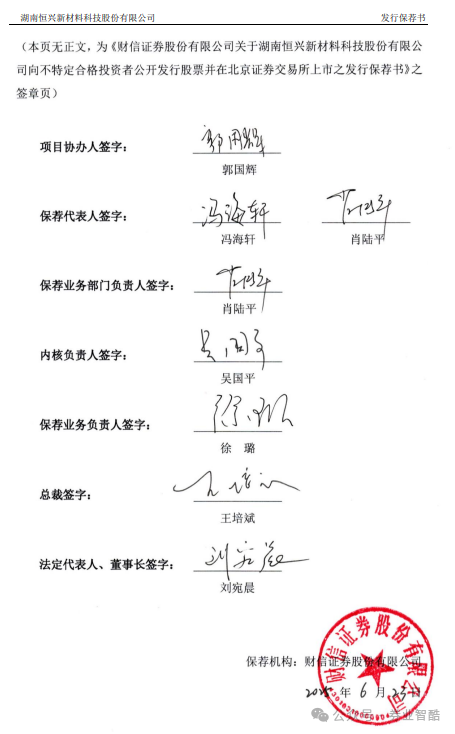 湖南恒兴新材料科技股份有限公司 发行保荐书
（本页无正文，为《财信证券股份有限公司关于湖南恒兴新材料科技股份有限公
司向不特定合格投资者公开发行股票并在北京证券交易所上市之发行保荐书》之
签章页）
项目协办人签字：
郭国辉
保荐代表人签字： 冯海轩
冯海轩 肖陆平
保荐业务部门负责人签字：
肖陆平
内核负责人签字：
吴国平
保荐业务负责人签字：
徐 璐
总裁签字：
王培斌
法定代表人、董事长签字：
刘宛晨
财信证券股份有限公司
保荐机构：财信证券股份有限公司
2025 年 6 月 23 日
公众号 业智酷